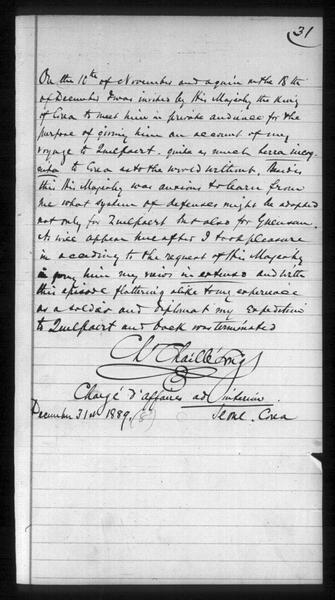 31
On the 12th of November and again on the 18th
of December I was invited by His Majesty the King
of Corea to meet him in private audience for the
purpose of giving him an account of my
voyage to Quelpaert. quite as much terra incog-
nita to Corea as to the world without. Besides
this His Majesty was anxious to learn from
me what system of defenses might be adopted
not only for Quelpaert but also for Guensan.
As will appear hereafter I took pleasure
in according to the request of His Majesty
in giving him my views in extenso and with
this episode flattering alike to my experience
as a soldier and diplomat my expedition
to Quelpaert and back was terminated
Ch Chaillé Long
Chargé d'affaires ad interim
December 31st 1889. (8) Seoul. Corea